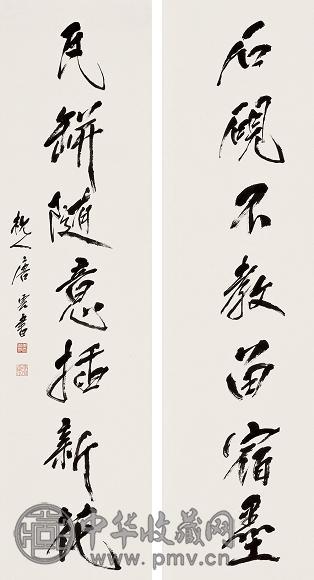 石砚不教留宿墨
瓦缾随意插新花
杭人唐云书
中华收藏网
www.pmv.cn